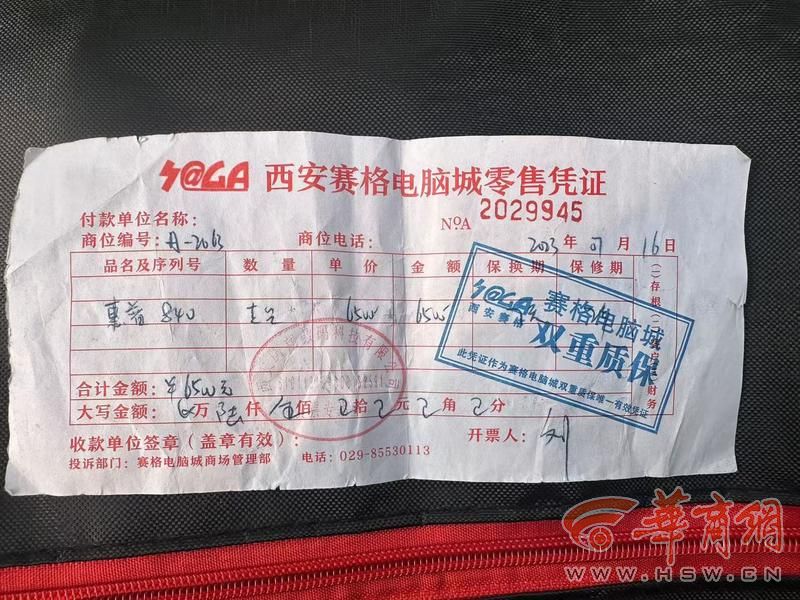 S@GA 西安赛格电脑城零售凭证
付款单位名称：
NºA 2029945
商位编号：A-2063 商位电话： 2023年07月16日
品名及序列号 数量 单价 金额 保换期 保修期
840 6500 6500
S@GA 赛格电脑城
西安赛格 双重质保
此凭证作为赛格电脑城双重质保唯一有效凭证
合计金额：￥6500元
大写金额： 万陆仟伍佰 拾 元 角 分
收款单位签章（盖章有效）： 开票人：刘
投诉部门：赛格电脑城商场管理部 电话：029-85530113
华商网
WWW.HSW.CN